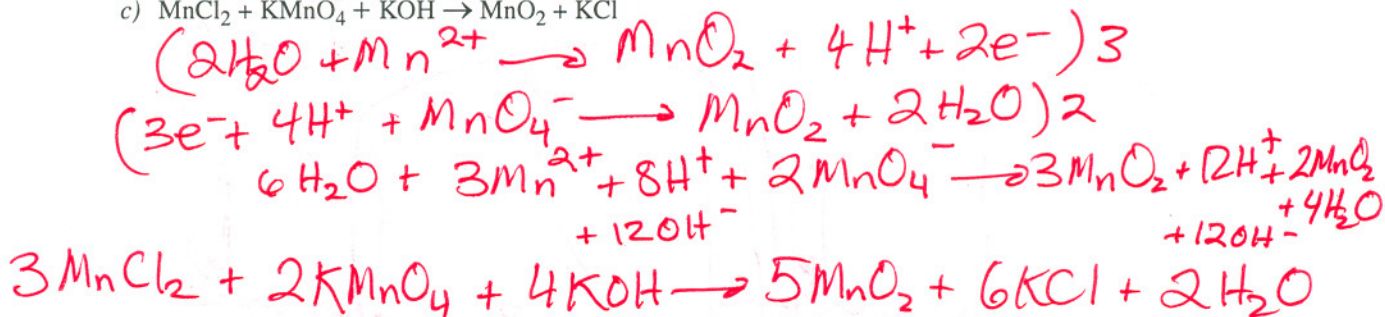 c) MnCl₂ + KMnO₄ + KOH → MnO₂ + KCl
(2H₂O + Mn²⁺ → MnO₂ + 4H⁺ + 2e-)3
(3e⁻ + 4H⁺ + MnO₄⁻ → MnO₂ + 2H₂O)2
6H₂O + 3Mn²⁺ + 8H⁺ + 2MnO₄⁻ → 3MnO₂ + 12H⁺ + 2MnO₂
+ 4H₂O
+ 12OH⁻ + 12OH⁻
3MnCl₂ + 2KMnO₄ + 4KOH → 5MnO₂ + 6KCl + 2H₂O